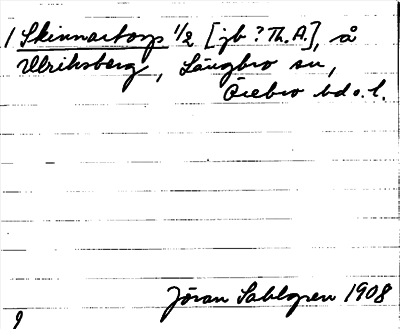 1 Skinnartorp 1/2 [jb? Th. A.], å
Ulriksberg, Längbro sn,
Örebro hd o. l.
Jöran Sahlgren 1908